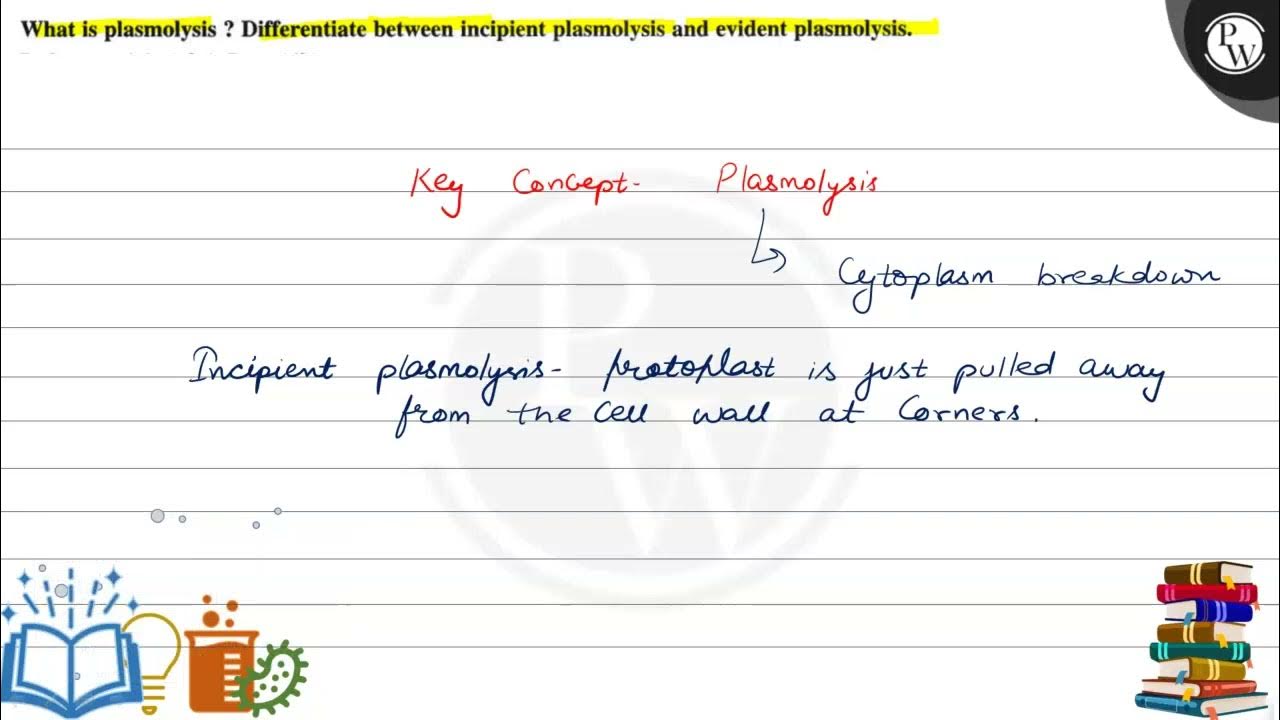 What is plasmolysis ? Differentiate between incipient plasmolysis and evident plasmolysis.
PW
Key Concept- Plasmolysis
Cytoplasm breakdown
Incipient plasmolysis- protoplast is just pulled away
from the cell wall at Corners.
PW